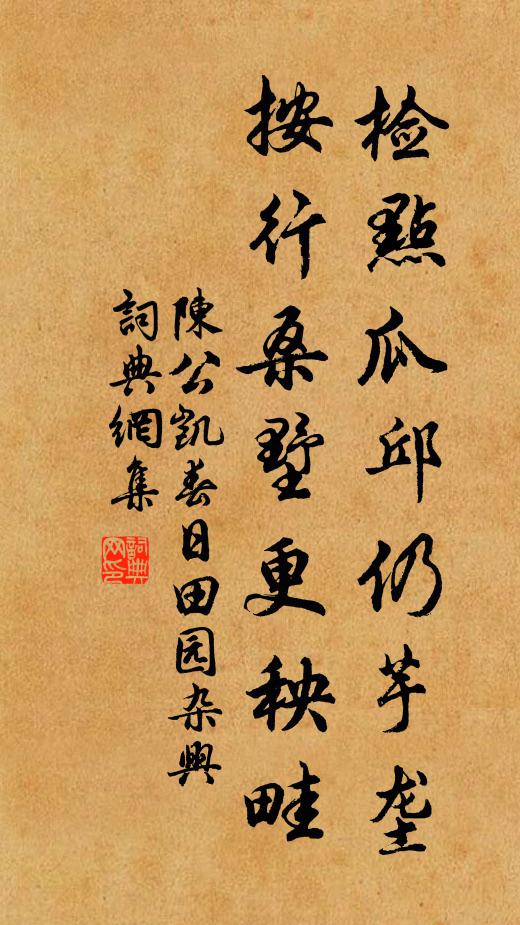 检點瓜邱仍芋垄
按行桑墅更秧畦
陳公凯春日田园杂興
詞典網集
詞典网印